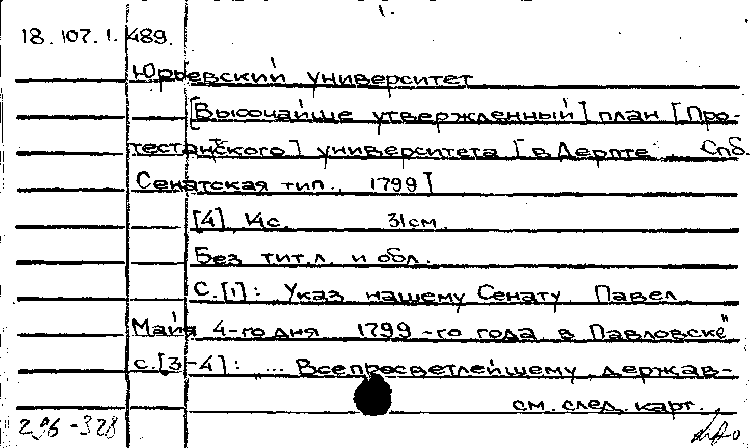 1.
18.107.1.489.
Юрьевский университет
[Высочайше утвержденный] план [Про-
тестантского] университета [в Дерпте. Спб.
Сенатская тип., 1799]
[4], 14с. 31см.
Без тит.л. и обл.
С.[1]: Указ нашему Сенату Павел
Майя 4-го дня 1799-го года в Павловске"
с.[3-4]: ... Всепресветлейшему держав-
см. след. карт.
296-328